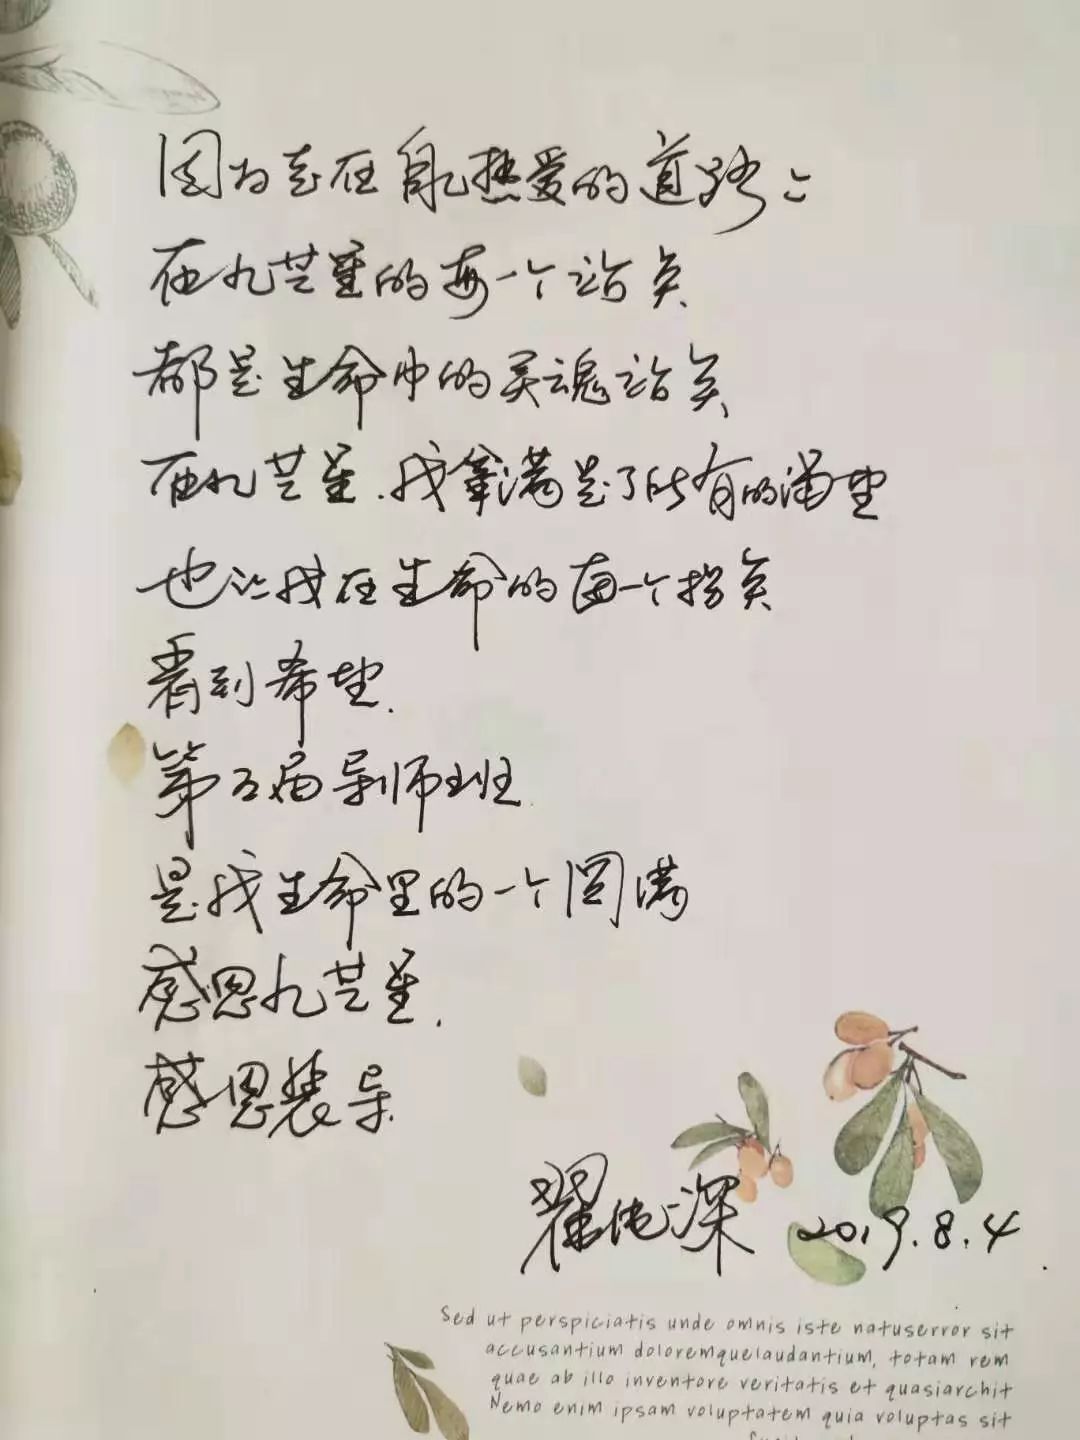 因为走在自己热爱的道路上
在九芒星的每一个站点
都是生命中的灵魂站点
在九芒星.我拿满足了所有的渴望
也让我在生命的每一个拐点
看到希望.
第五届导师班
是我生命里的一个圆满
感恩九芒星.
感恩裴导
翟 深 2019.8.4
Sed ut perspiciatis unde omnis iste natuserror sit
accusantium doloremquelaudantium, totam rem
quae ab illo inventore veritatis et quasiarchit
Nemo enim ipsam voluptatem quia voluptas sit